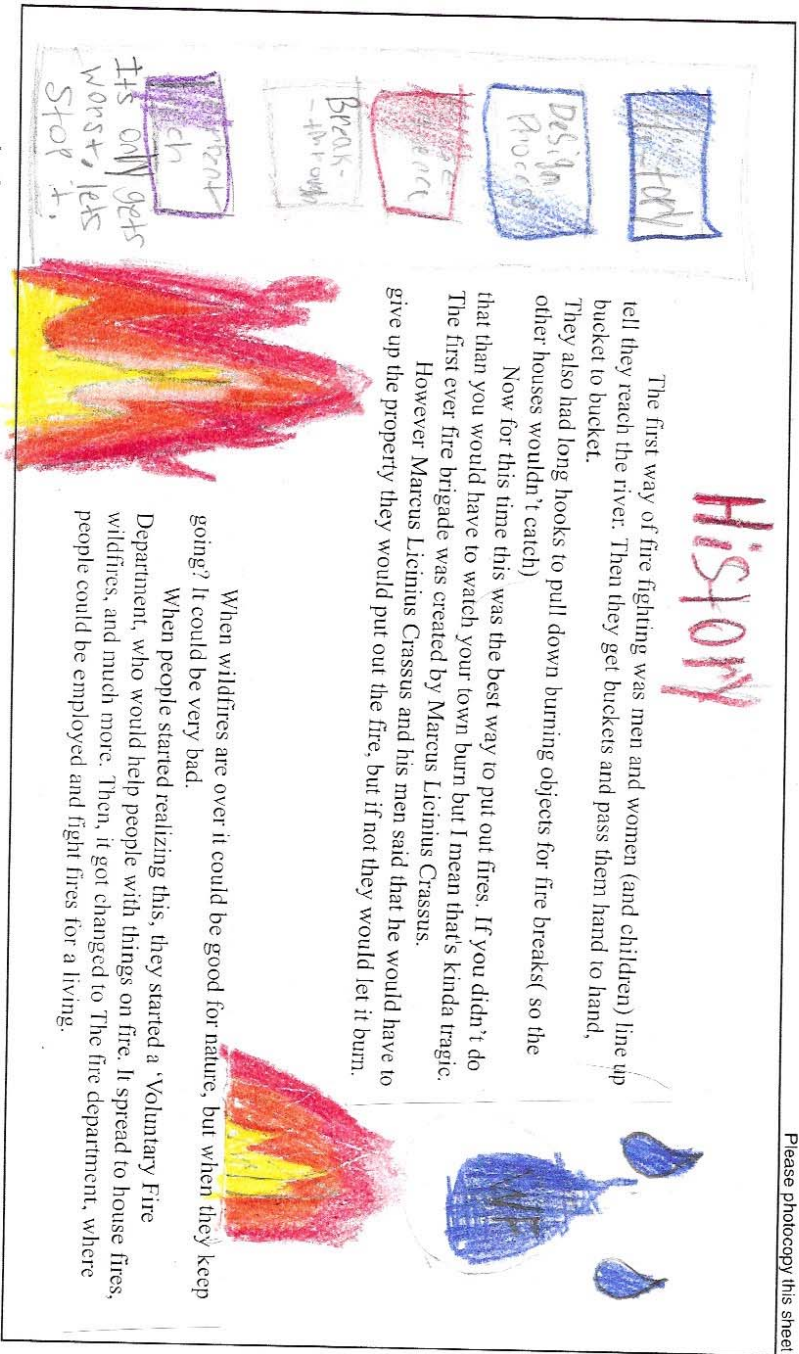 Please photocopy this sheet
History
The first way of fire fighting was men and women (and children) line up
tell they reach the river. Then they get buckets and pass them hand to hand,
bucket to bucket.
They also had long hooks to pull down burning objects for fire breaks( so the
other houses wouldn't catch)
Now for this time this was the best way to put out fires. If you didn't do
that than you would have to watch your town burn but I mean that's kinda tragic.
The first ever fire brigade was created by Marcus Licinius Crassus.
However Marcus Licinius Crassus and his men said that he would have to
give up the property they would put out the fire, but if not they would let it burn.
When wildfires are over it could be good for nature, but when they keep
going? It could be very bad.
When people started realizing this, they started a 'Voluntary Fire
Department, who would help people with things on fire. It spread to house fires,
wildfires, and much more. Then, it got changed to The fire department, where
people could be employed and fight fires for a living.
Design
Process
Break-
-through
Its only gets
worst, lets
Stop it.